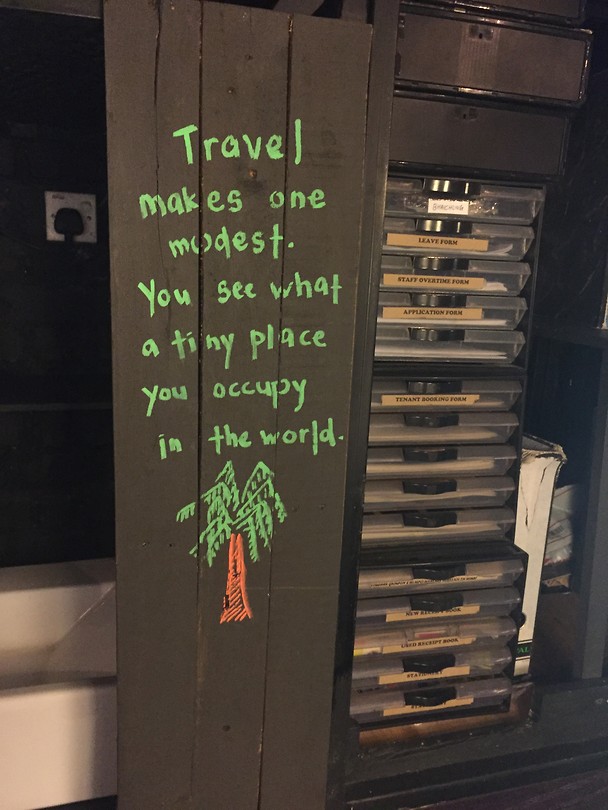 Travel
makes one
modest.
You see what
a tiny place
you occupy
in the world.
LEAVE FORM
STAFF OVERTIME FORM
APPLICATION FORM
TENANT BOOKING FORM
USED RECEIPT BOOK
STATIONERY